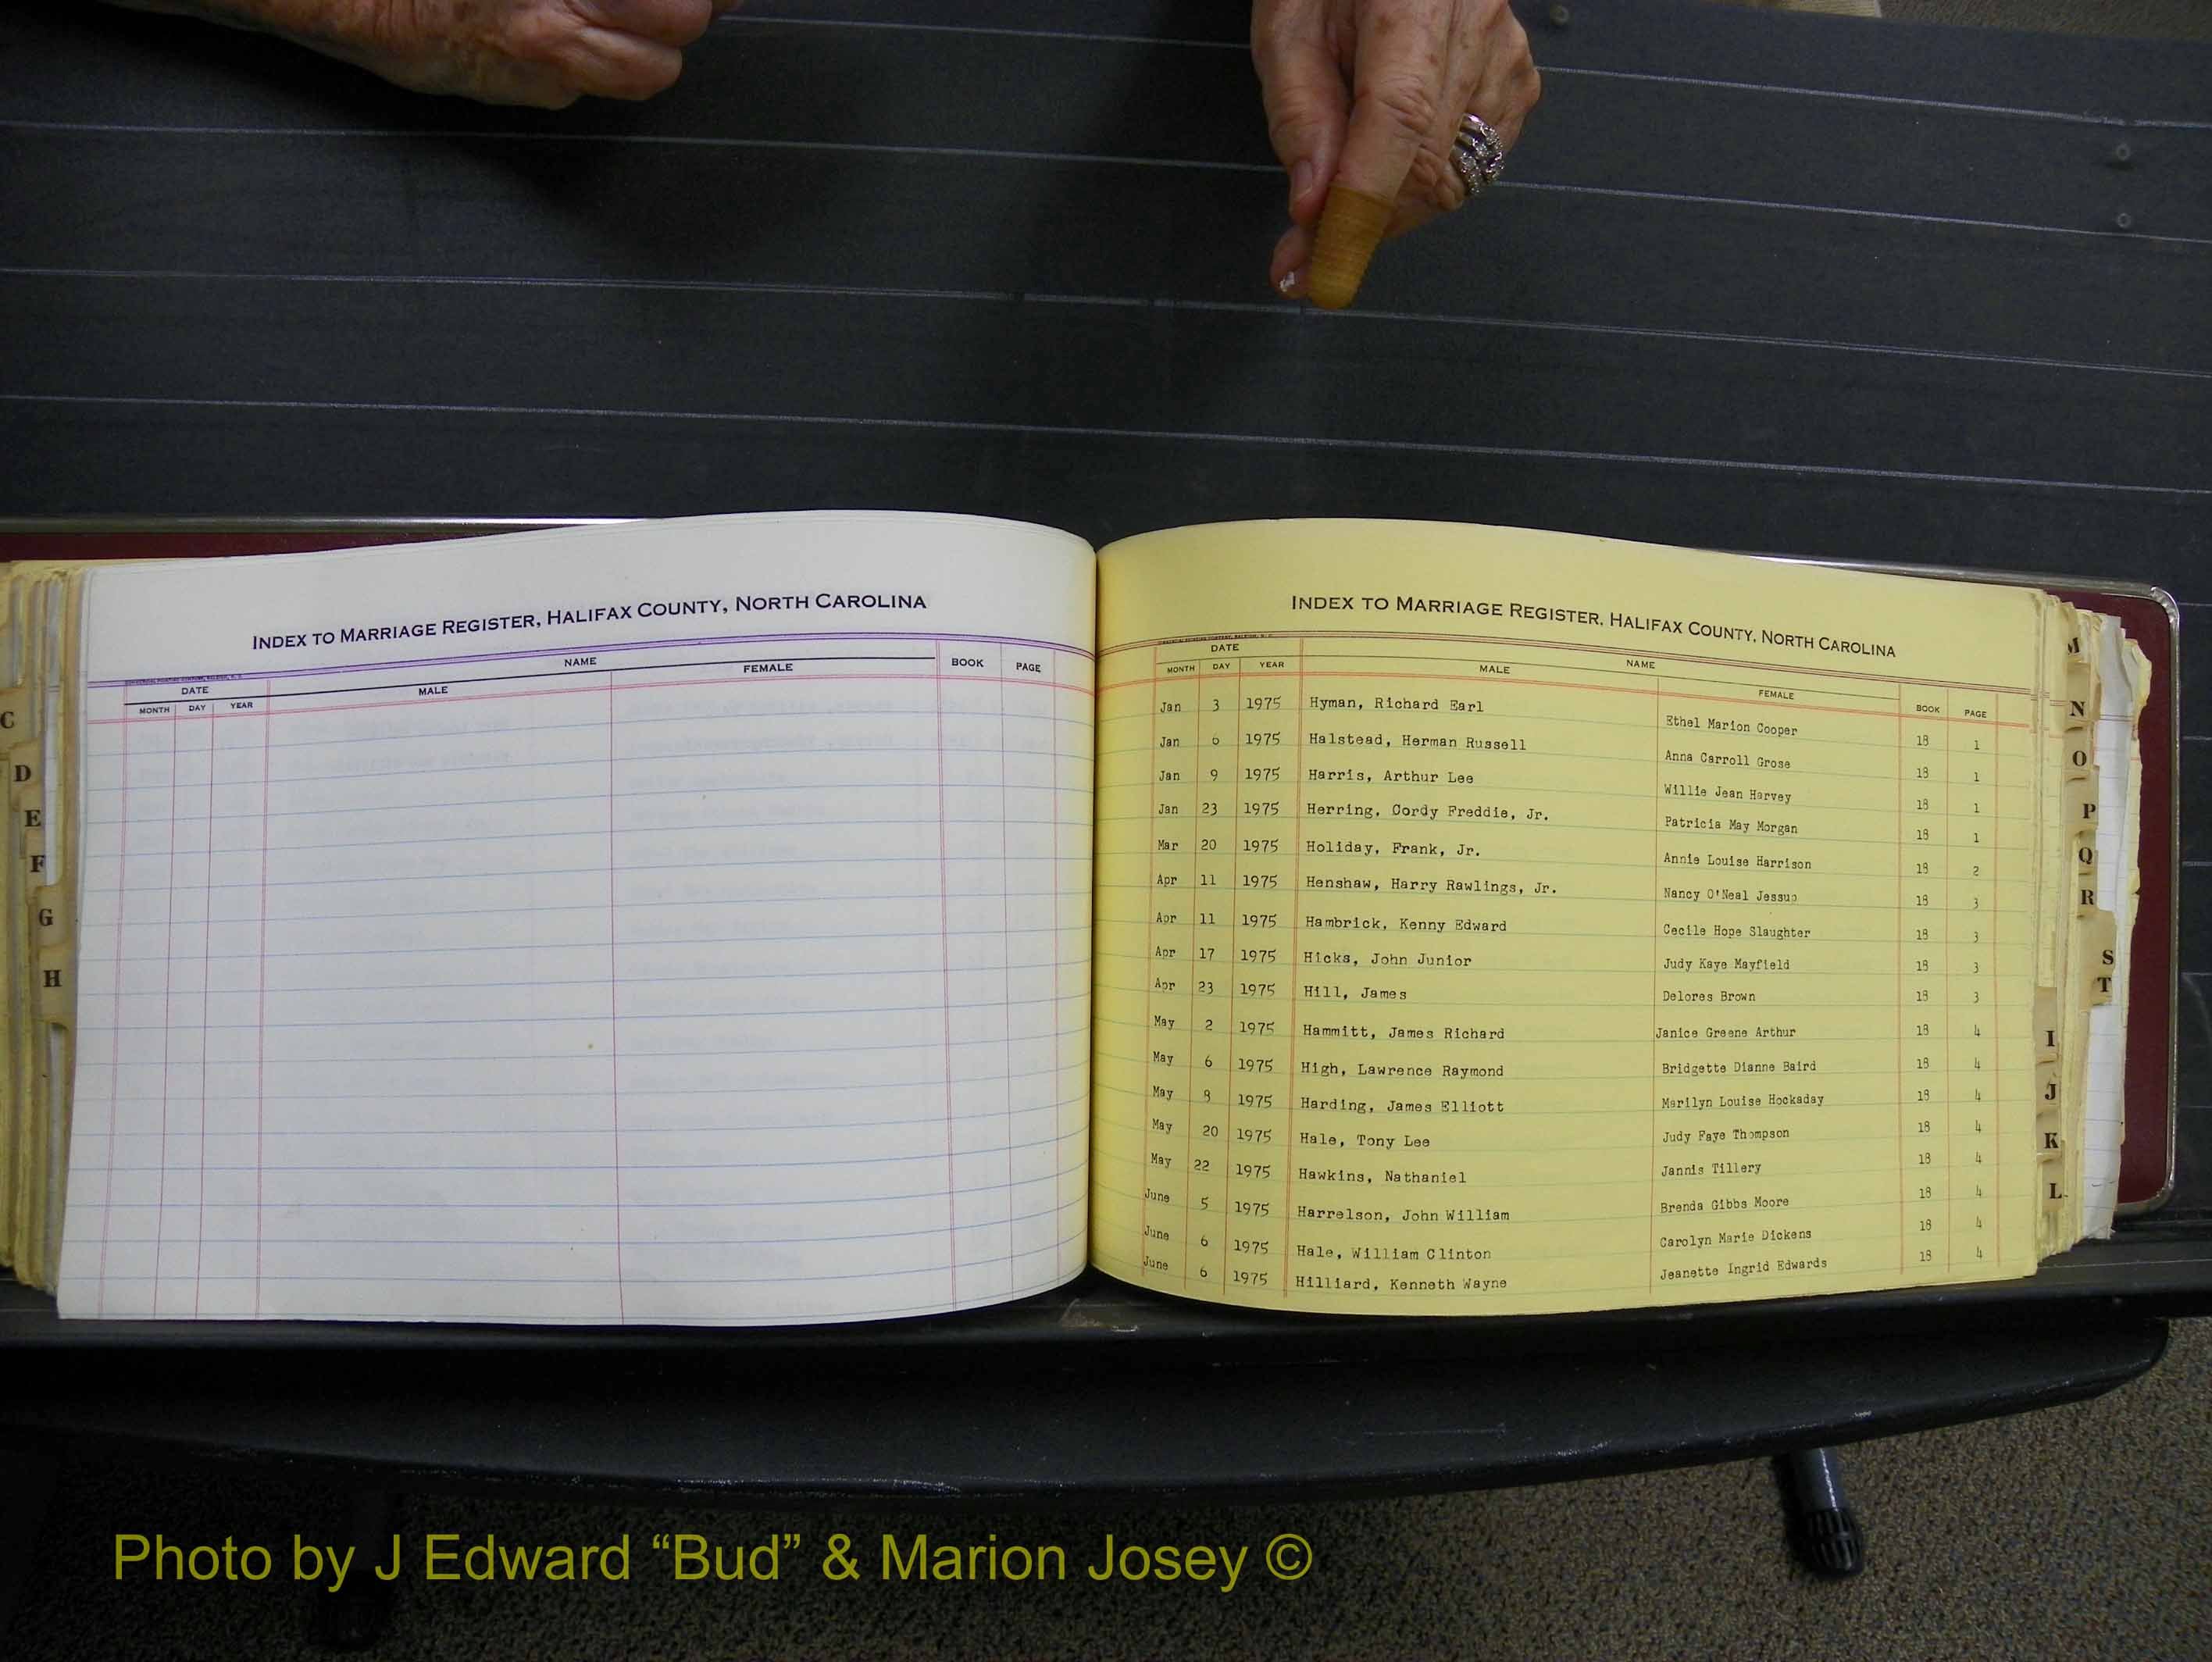 INDEX TO MARRIAGE REGISTER, HALIFAX COUNTY, NORTH CAROLINA
DATE NAME BOOK PAGE
MONTH DAY YEAR MALE FEMALE
C
D
E
F
G
H
INDEX TO MARRIAGE REGISTER, HALIFAX COUNTY, NORTH CAROLINA
DATE NAME
MONTH DAY YEAR MALE FEMALE BOOK PAGE
Jan 3 1975 Hyman, Richard Earl Ethel Marion Cooper 18 1
Jan 6 1975 Halstead, Herman Russell Anna Carroll Grose 18 1
Jan 9 1975 Harris, Arthur Lee Willie Jean Harvey 18 1
Jan 23 1975 Herring, Cordy Freddie, Jr. Patricia May Morgan 18 1
Mar 20 1975 Holiday, Frank, Jr. Annie Louise Harrison 18 2
Apr 11 1975 Henshaw, Harry Rawlings, Jr. Nancy O'Neal Jessup 18 3
Apr 11 1975 Hambrick, Kenny Edward Cecile Hope Slaughter 18 3
Apr 17 1975 Hicks, John Junior Judy Kaye Mayfield 18 3
Apr 23 1975 Hill, James Delores Brown 18 3
May 2 1975 Hammitt, James Richard Janice Greene Arthur 18 4
May 6 1975 High, Lawrence Raymond Bridgette Dianne Baird 18 4
May 8 1975 Harding, James Elliott Marilyn Louise Hockaday 18 4
May 20 1975 Hale, Tony Lee Judy Faye Thompson 18 4
May 22 1975 Hawkins, Nathaniel Jannis Tillery 18 4
June 5 1975 Harrelson, John William Brenda Gibbs Moore 18 4
June 6 1975 Hale, William Clinton Carolyn Marie Dickens 18 4
June 6 1975 Hilliard, Kenneth Wayne Jeanette Ingrid Edwards 18 4
M
N
O
P
Q
R
S
T
I
J
K
L
Photo by J Edward “Bud” & Marion Josey ©